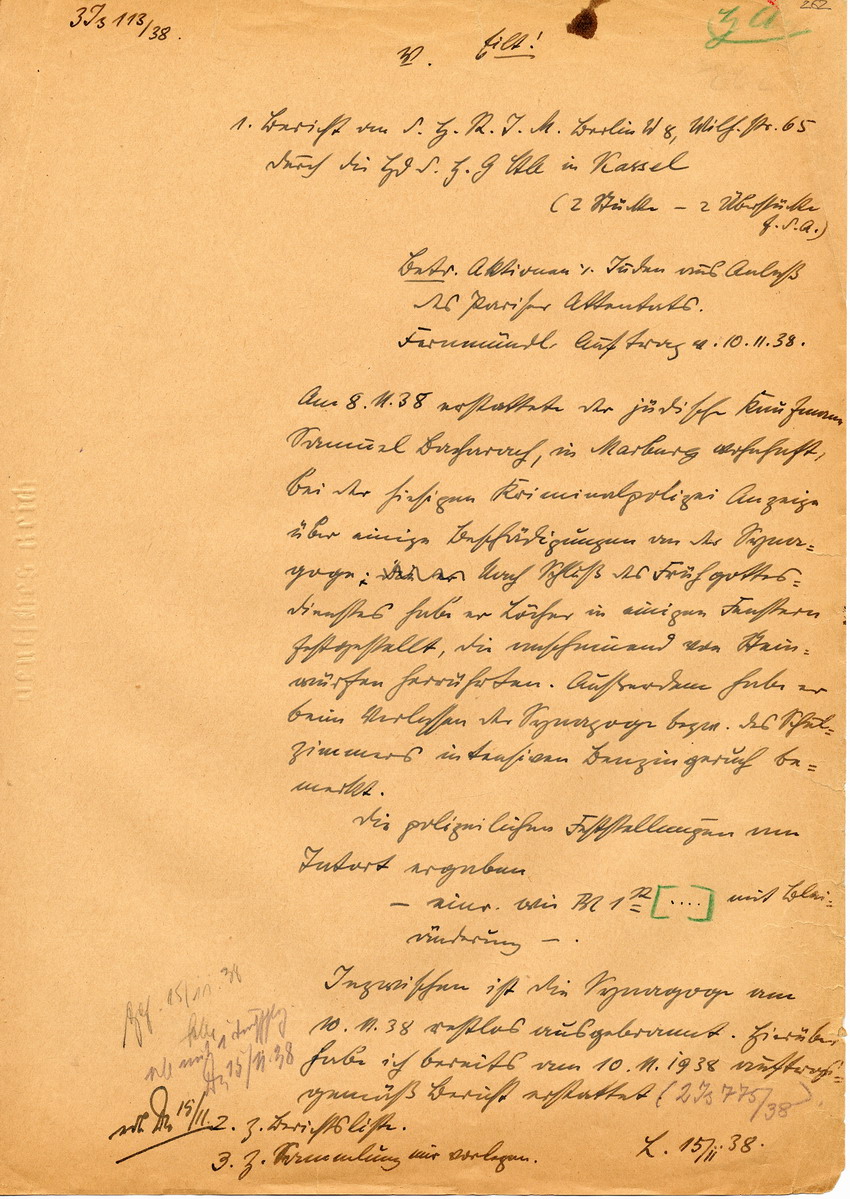 3 Js 113/38.
252
V. Eilt!
1. Bericht an d. H. R. J. M. Berlin W 8, Wilh. Str. 65
durch die Hd d. H. G StA in Kassel
(2 Stücke – 2 Überstücke
z. d. A.)
Betr. Aktionen g. Juden aus Anlaß
des Pariser Attentats.
Fernmündl. Auftrag v. 10.11.38.
Am 8.11.38 erstattete der jüdische Kaufmann
Samuel Bacharach, in Marburg wohnhaft,
bei der hiesigen Kriminalpolizei Anzeige
über einige Beschädigungen an der Syna=
goge; Nach Schluß des Frühgottes=
dienstes habe er Löcher in einigen Fenstern
festgestellt, die anscheinend von Stein=
würfen herrührten. Außerdem habe er
beim Verlassen der Synagoge bezw. des Schul=
zimmers intensiven Benzingeruch be=
merkt.
Die polizeilichen Feststellungen am
Tatort ergaben
– einr. wie Bl 1 R [....] mit Blei=
änderung –.
Inzwischen ist die Synagoge am
10.11.38 restlos ausgebrannt. Hierüber
habe ich bereits am 10.11.1938 auftrags=
gemäß Bericht erstattet (2 Js 775/38).
gef. 15/11. 38
15/11.38
15/11.
2. Z. Berichtsliste.
3. Z. Sammlung mir vorlegen.
L. 15/11 38.
Deutsches Reich